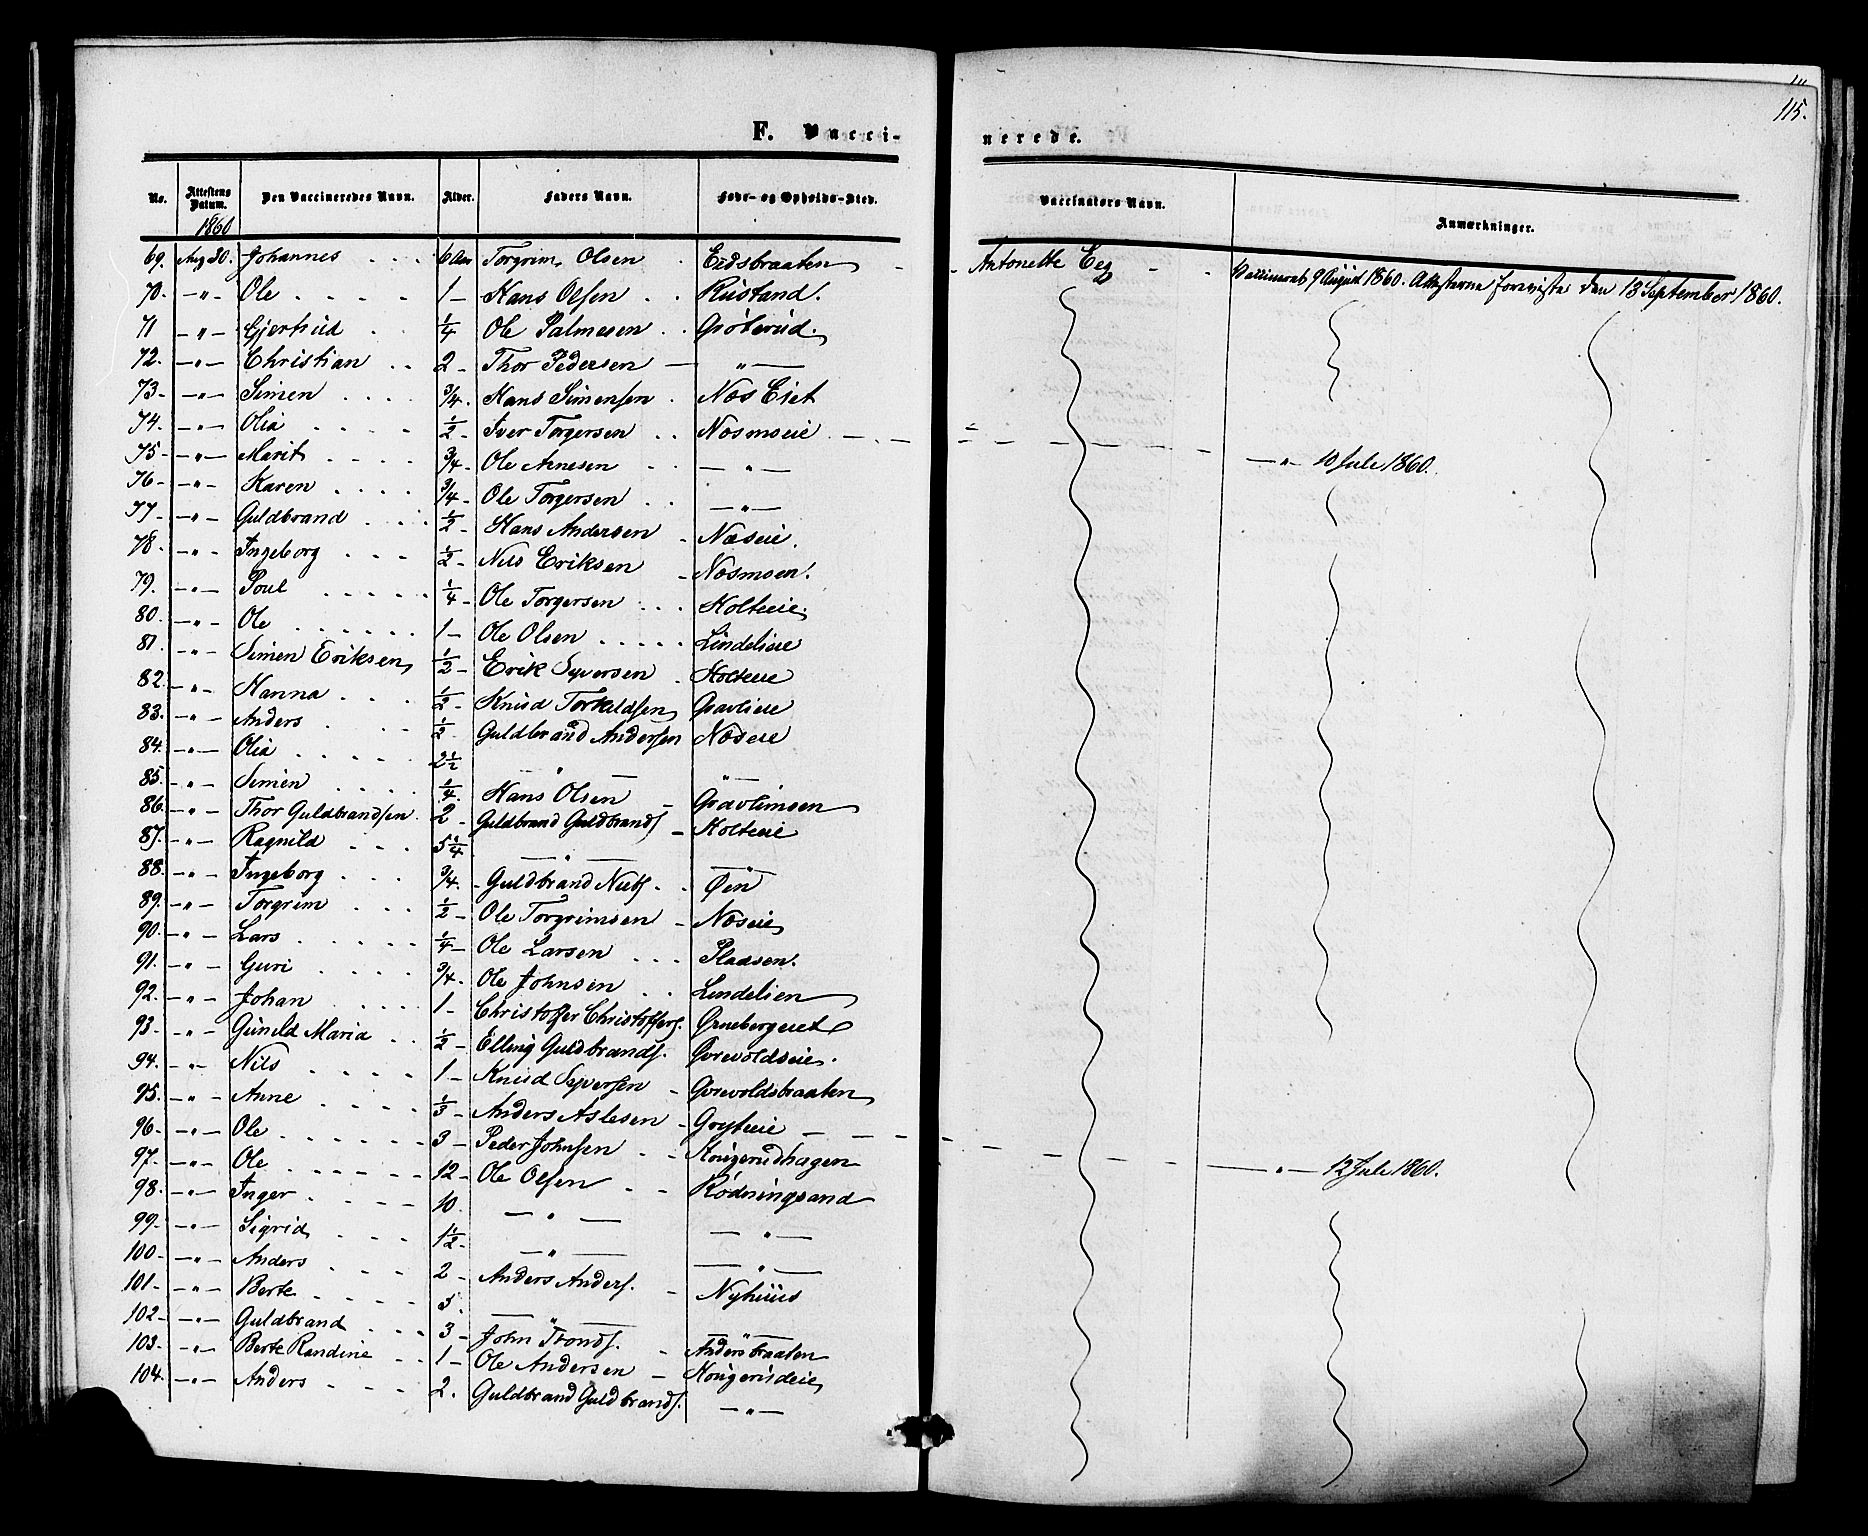 115.
F. Vacci-
nerede.
No. Attestens Datum. Den Vaccineredes Navn. Alder. Faders Navn. Føde- og Opholds-Sted. Vaccinators Navn. Anmærkninger.
1860
69. Aug 30. Johannes 6 Aar Torgrim Olsen Eidsbraaten Antonette Eeg Vaccineret 9 August 1860. Attesterne foreviste den 13 September 1860.
70. —"— Ole 1 — Hans Olsen Rustand.
71 —"— Gjertrud ¼ Ole Palmesen Grøterud
72. —"— Christian 2 — Thor Pedersen — — " —
73 — —"— Simen ¾. Hans Simensen Næs Eiet
74. —"— Olia ½ Iver Torgersen Næsmoeie
75 — —"— Marit ¾ — Ole Arnesen — " — — " — 10 Juli 1860.
76 — —"— Karen ¾ — Ole Torgersen — " —
77 — —"— Guldbrand ½ — Hans Andersen Næseie.
78. —"— Ingeborg ½ — Nils Eriksen Næsmoen.
79. —"— Poul ¼ — Ole Torgersen Holteeie
80. —"— Ole 1 — Ole Olsen Lindelieie
81. —"— Simen Eriksen ½ — Erik Syversen Holteeie
82. —"— Hanna ½ — Knud Torkildsen Gravlieie
83. —"— Anders ½ Guldbrand Andersen Næseie
84. —"— Olia 2½ — " — — " —
85. —"— Simen ¼. Hans Olsen Gravlimoen
86. —"— Thor Guldbrandsen 2 — Guldbrand Guldbrands. Holteeie
87. —"— Ragnild 5¼ — " — — " —
88. —"— Ingeborg ¾. Guldbrand Niels. Øen
89. —"— Torgrim ½ — Ole Torgrimsen Næseie
90. —"— Lars ¼ — Ole Larsen Pladsen.
91. —"— Guri ¾. Ole Johnsen Lindelien
92. —"— Johan 1 — Christoffer Christoffers. Ørnebergeiet
93. —"— Gunild Maria ½ — Elling Guldbrands. Gorvoldseie.
94. —"— Nils 1 — Knud Syversen Gorvoldsbraaten
95. —"— Anne ⅓ — Anders Aslesen Gryteeie — " — 12 Juli 1860.
96. —"— Ole 3 — Peder Johnsen Kongerudhagen
97. —"— Ole 12 — Ole Olsen Rødningsand
98. —"— Inger 10. — " — — " —
99. —"— Sigrid 1½. — " — — " —
100 — —"— Anders 2 — Anders Anders. Nyhuus
101 — —"— Berte 5. — " — — " —
102 — —"— Guldbrand 3 — John Tronds. Andersbraaten
103. —"— Berte Randine 1 — Ole Andersen Kongerudeie
104. —"— Anders 2. Guldbrand Guldbrands. — " —